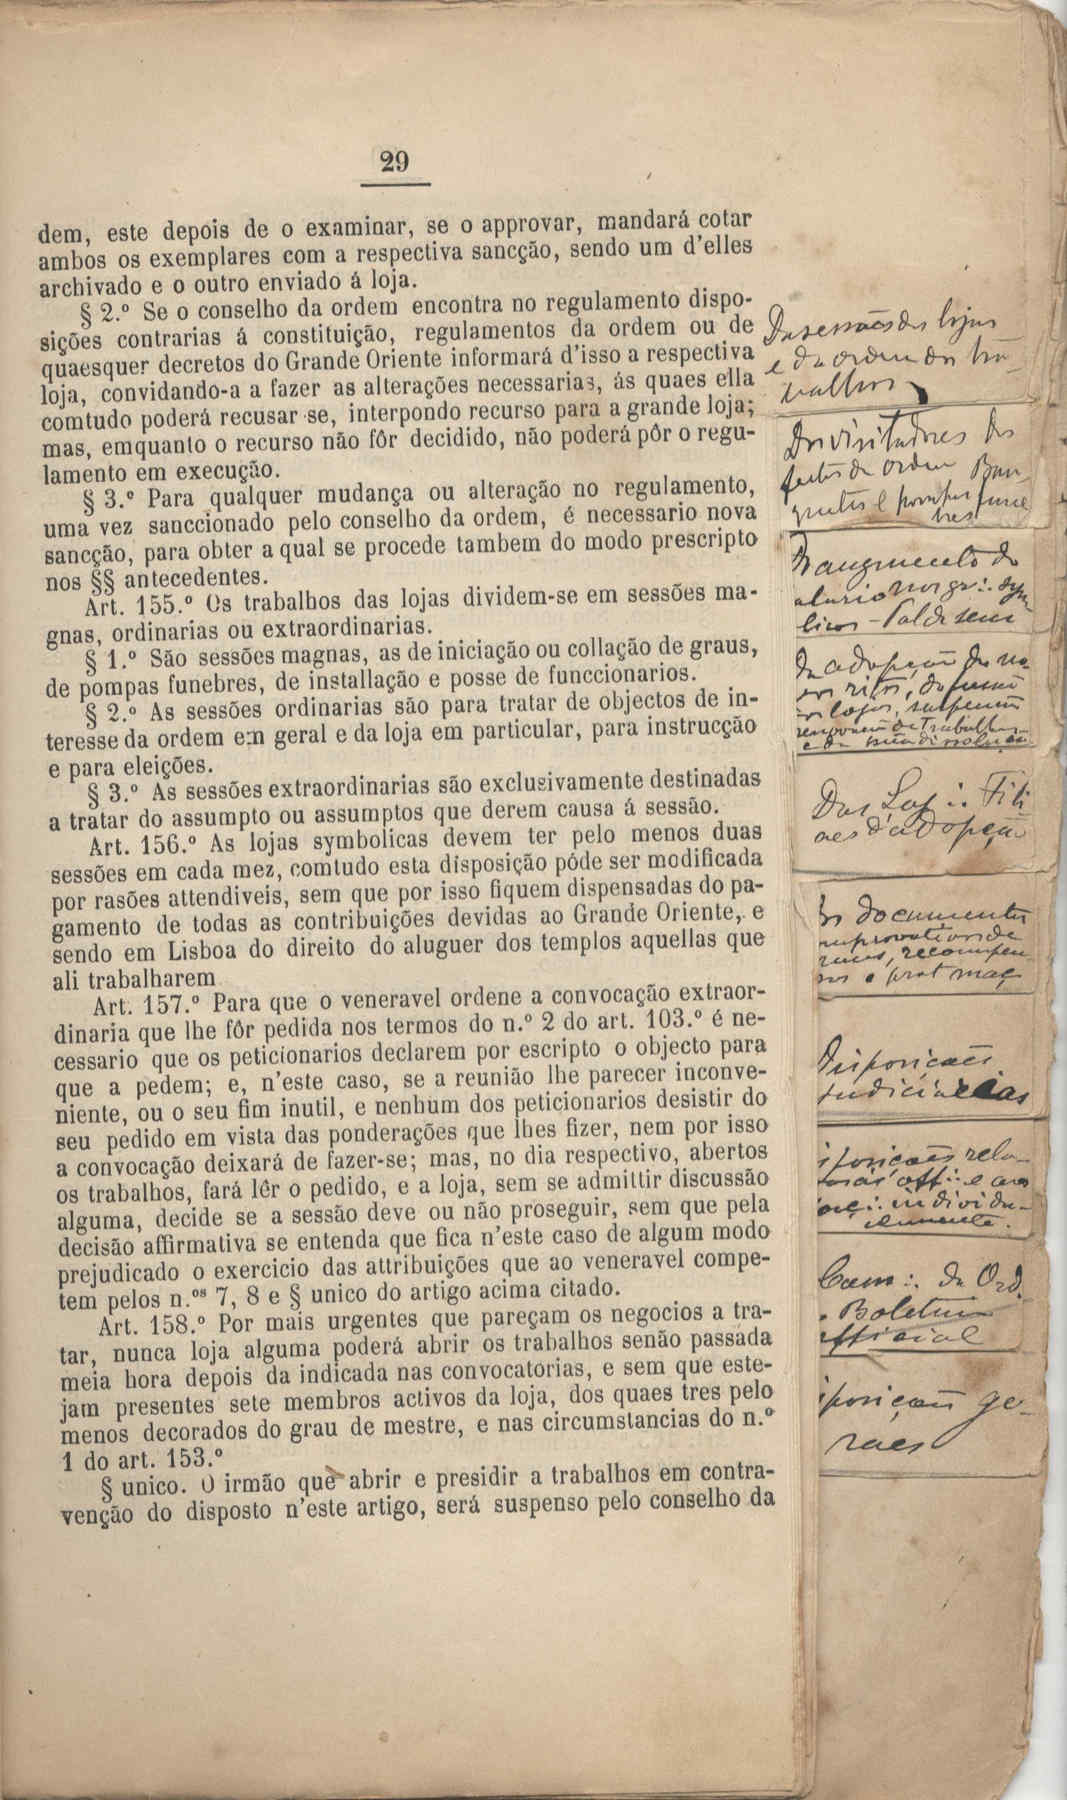 29
dem, este depois de o examinar, se o approvar, mandará cotar
ambos os exemplares com a respectiva sancção, sendo um d'elles
archivado e o outro enviado á loja.
§ 2.º Se o conselho da ordem encontra no regulamento dispo-
sições contrarias á constituição, regulamentos da ordem ou de
quaesquer decretos do Grande Oriente informará d'isso a respectiva
loja, convidando-a a fazer as alterações necessarias, ás quaes ella
comtudo poderá recusar-se, interpondo recurso para a grande loja;
mas, emquanto o recurso não fôr decidido, não poderá pôr o regu-
lamento em execução.
§ 3.º Para qualquer mudança ou alteração no regulamento,
uma vez sanccionado pelo conselho da ordem, é necessario nova
sancção, para obter a qual se procede tambem do modo prescripto
nos §§ antecedentes.
Art. 155.º Os trabalhos das lojas dividem-se em sessões ma-
gnas, ordinarias ou extraordinarias.
§ 1.º São sessões magnas, as de iniciação ou collação de graus,
de pompas funebres, de installação e posse de funccionarios.
§ 2.º As sessões ordinarias são para tratar de objectos de in-
teresse da ordem em geral e da loja em particular, para instrucção
e para eleições.
§ 3.º As sessões extraordinarias são exclusivamente destinadas
a tratar do assumpto ou assumptos que derem causa á sessão.
Art. 156.º As lojas symbolicas devem ter pelo menos duas
sessões em cada mez, comtudo esta disposição póde ser modificada
por rasões attendiveis, sem que por isso fiquem dispensadas do pa-
gamento de todas as contribuições devidas ao Grande Oriente, e
sendo em Lisboa do direito do aluguer dos templos aquellas que
ali trabalharem
Art. 157.º Para que o veneravel ordene a convocação extraor-
dinaria que lhe fôr pedida nos termos do n.º 2 do art. 103.º é ne-
cessario que os peticionarios declarem por escripto o objecto para
que a pedem; e, n'este caso, se a reunião lhe parecer inconve-
niente, ou o seu fim inutil, e nenhum dos peticionarios desistir do
seu pedido em vista das ponderações que lhes fizer, nem por isso
a convocação deixará de fazer-se; mas, no dia respectivo, abertos
os trabalhos, fará lêr o pedido, e a loja, sem se admittir discussão
alguma, decide se a sessão deve ou não proseguir, sem que pela
decisão affirmativa se entenda que fica n'este caso de algum modo
prejudicado o exercicio das attribuições que ao veneravel compe-
tem pelos n.os 7, 8 e § unico do artigo acima citado.
Art. 158.º Por mais urgentes que pareçam os negocios a tra-
tar, nunca loja alguma poderá abrir os trabalhos senão passada
meia hora depois da indicada nas convocatorias, e sem que este-
jam presentes sete membros activos da loja, dos quaes tres pelo
menos decorados do grau de mestre, e nas circumstancias do n.º
1 do art. 153.º
§ unico. O irmão que abrir e presidir a trabalhos em contra-
venção do disposto n'este artigo, será suspenso pelo conselho da
Da sessões das lojas
e da ordem dos tra-
balhos
Dos visitadores Das
festas da ordem Ban-
quetes e pompas fune
bres
Do augmento do
salario nos gr∴ sym
licos
Da adopção de no-
ritos, da fusão
lojas, suspensão
de trabalhos
e da sua dissolução
Das Loj∴ Fili
aes d'adopção
os documentos
comprovativos de
recompen
sas e prot maç
Disposicões
Judiciárias
sposicões rela-
off∴ e aos
maç∴ individu-
almente.
Cam∴ da Ord.
Boletim
official
sposicões ge-
raes